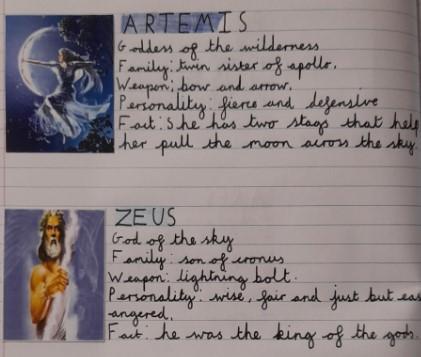 ARTEMIS
Goddess of the wilderness
Family: twin sister of apollo.
Weapon: bow and arrow.
Personality: fierce and defensive
Fact: She has two stags that help
her pull the moon across the sky.
ZEUS
God of the sky
Family: son of cronus
Weapon: lightning bolt.
Personality: wise, fair and just but eas
angered.
Fact: he was the king of the gods.